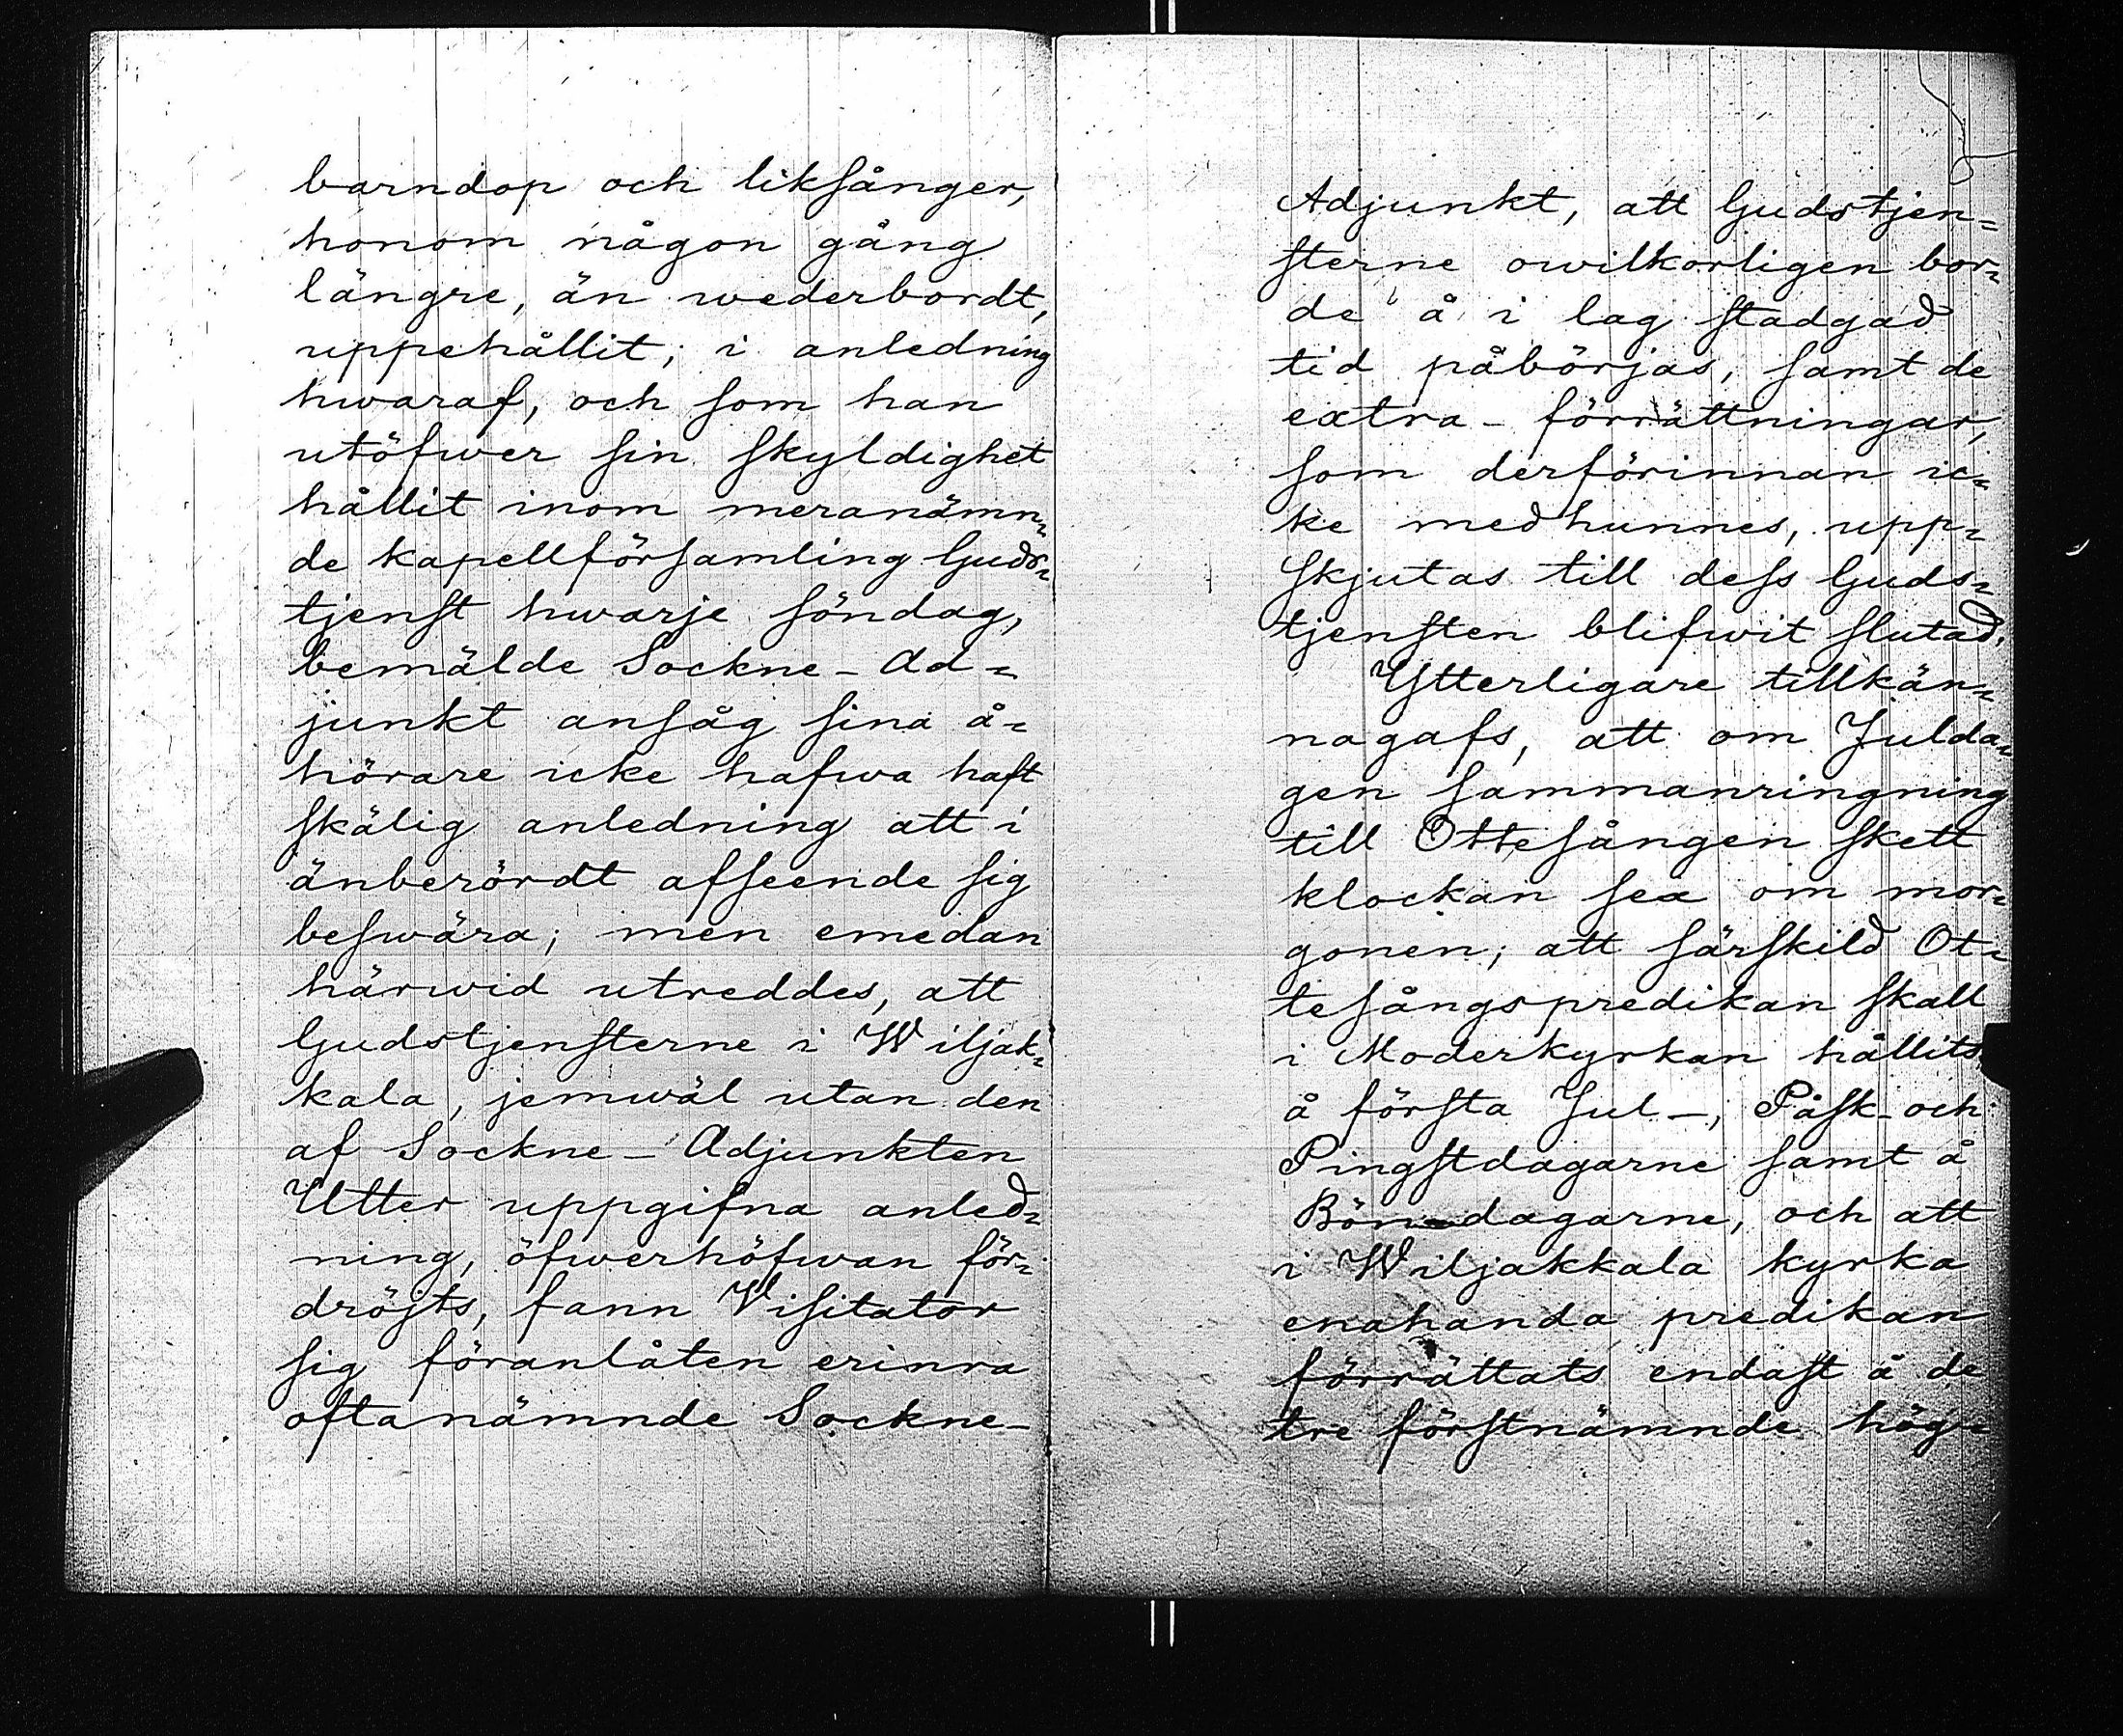 barndop och liksånger,
honom någon gång
längre, än wederbordt,
uppehållit; i anledning
hwaraf, och som han
utöfwer sin skyldighet
hållit inom meranämn=
de kapellförsamling Guds=
tjenst hwarje söndag,
bemälde Sockne-Ad=
junkt ansåg sina å=
hörare icke hafwa haft
skälig anledning att i
änberördt afseende sig
beswära; men emedan
härwid utreddes, att
Gudstjensterne i Wiljak=
kala, jemwäl utan den
af Sockne-Adjunkten
Utter uppgifna anled=
ning, öfwerhöfwan för=
dröjts, fann Visitator
sig föranlåten erinra
oftanämnde Sockne-
Adjunkt, att Gudstjen=
sterne owilkorligen bor=
de å i lag stadgad
tid påbörjas, samt de
extra-förrättningar,
som derförinnan ic=
ke medhunnes, upp=
skjutas till dess Guds=
tjensten blifwit slutad.
Ytterligare tillkän=
nagafs, att om Julda=
gen sammanringning
till Ottesången skett
klockan sex om mor=
gonen; att särskild Ot=
tesångspredikan skall
i Moderkyrkan hållits
å första Jul-, Påsk- och
Pingstdagarne samt å
Böndagarne, och att
i Wiljakkala kyrka
enahanda predikan
förrättats endast å de
tre förstnämnde hög=